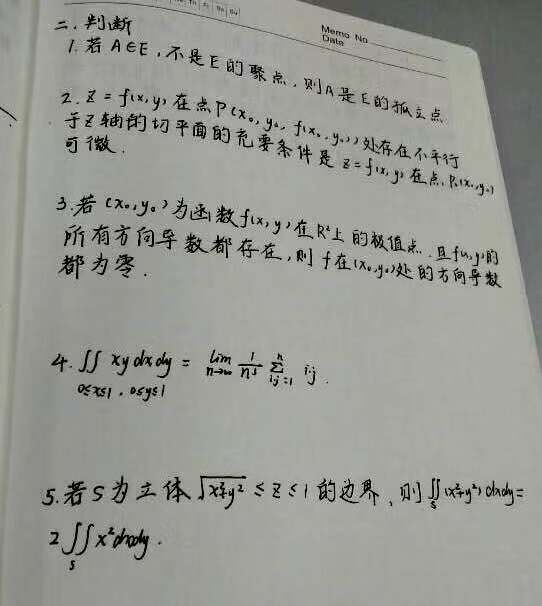 Memo No
Date
二.判断
1.若A∈E,不是E的聚点,则A是E的孤立点
2.z=f(x,y)在点P(x₀,y₀,f(x₀,y₀))处存在不平行
于z轴的切平面的充要条件是z=f(x,y)在点P₀(x₀,y₀)
可微.
3.若(x₀,y₀)为函数f(x,y)在R²上的极值点.且f(x,y)的
所有方向导数都存在,则f在(x₀,y₀)处的方向导数
都为零.
4.∬xydxdy = lim 1/n⁵ Σ ij.
0≤x≤1,0≤y≤1 n→∞ i,j=1 n
5.若S为立体√x²+y² ≤z≤1的边界,则∬(x²+y²)dxdy=
S
2∬x²dxdy.
S